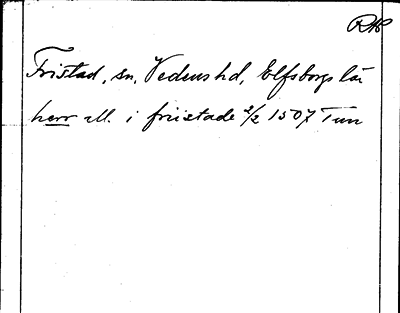 RAP
Fristad, sn, Vedens hd, Elfsborgs län
herr M. i fristade 2/2 1507 Tun